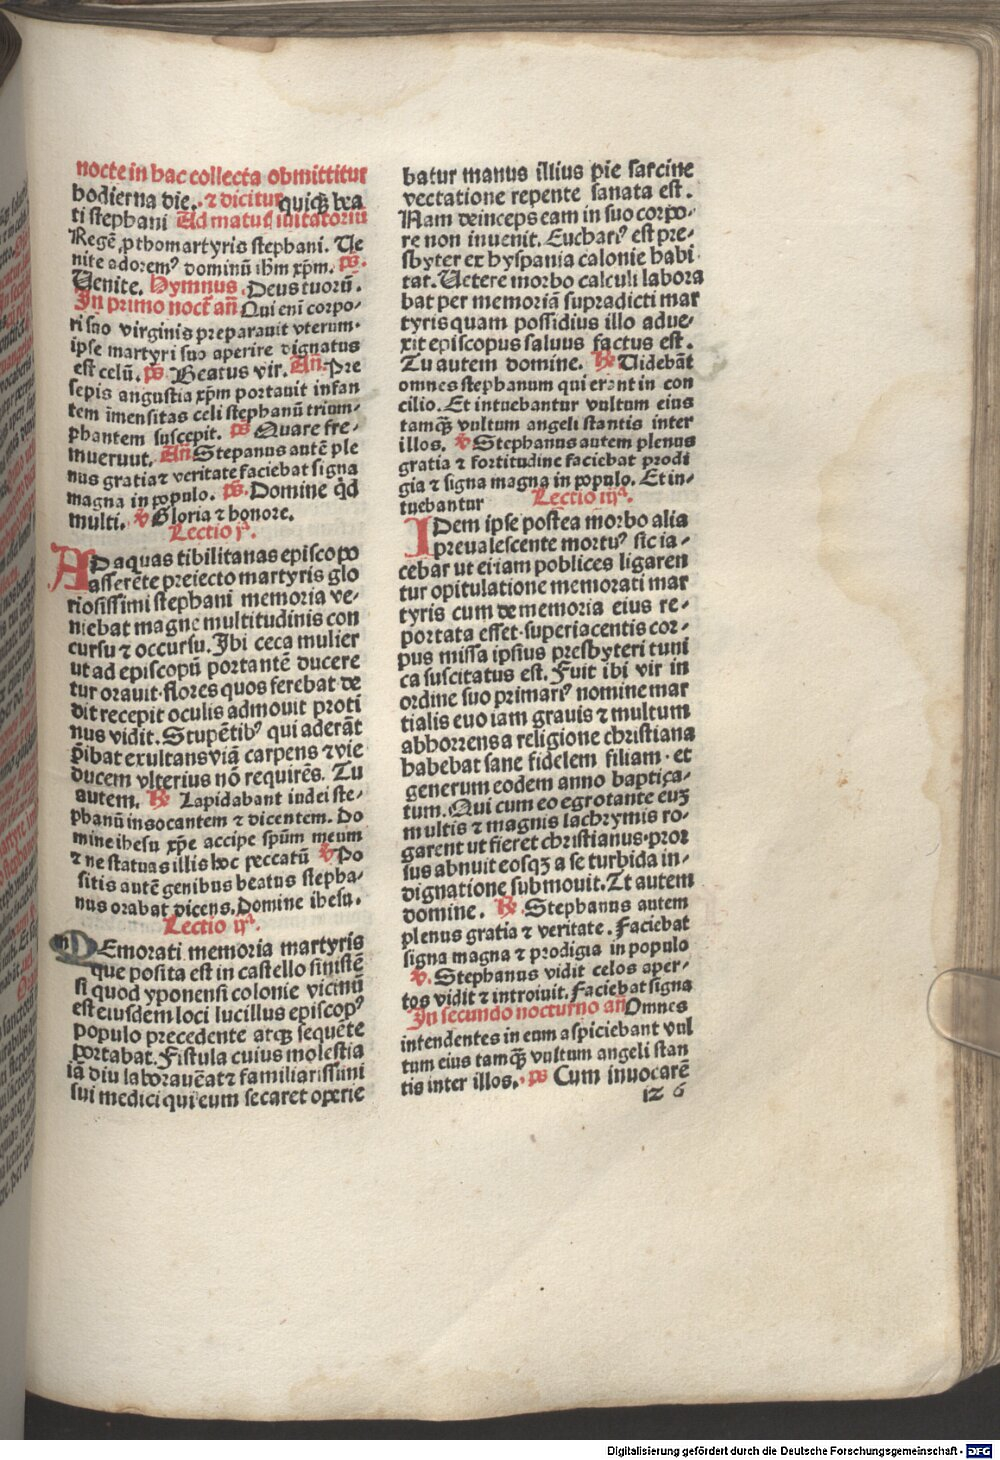 nocte in hac collecta obmittitur
hodierna die. ⁊ dicitur quiqꝫ bea
ti stephani Ad matuť iuitatoriū
Regē ꝓthomartyris stephani. Ue
nite adoremꝰ dominū ihm xp̄m. ps.
Uenite. Hymnus. Deus tuorū.
In primo noct̄ an̄ Qui eni corpo-
ri suo virginis preparauit vterum.
ipse martyri suo aperire dignatus
est celū. ps. Beatus vir. An̄. Pre
sepis angustia xp̄m portauit infan
tem imensitas celi stephanū trium-
phantem suscepit. ps Quare fre-
muerunt. An̄ Stepanus autē ple
nus gratia ⁊ veritate faciebat signa
magna in populo. ps. Domine qd̄
multi. ꝟ Gloria ⁊ honore.
Lectio jª.
AD aquas tibilitanas episcopo
afferēte preiecto martyris glo
riosissimi stephani memoria ve-
niebat magne multitudinis con
cursu ⁊ occursu. Ibi ceca mulier
ut ad episcopū portantē ducere
tur orauit. flores quos ferebat de
dit recepit oculis admouit proti
nus vidit. Stupētibꝰ qui aderāt
p̄ibat exultans viā carpens ⁊ vie
ducem vlterius nō requirēs. Tu
autem. ℞ Lapidabant iudei ste-
phanū inuocantem ⁊ dicentem. Do
mine ihesu xp̄e accipe spūm meum
⁊ ne statuas illis hoc peccatū ꝟ Po
sitis autē genibus beatus stepha-
nus orabat dicens. Domine ihesu.
Lectio ijª.
mDEmorati memoria martyris
que posita est in castello sinistē
si quod yponensi colonie vicinū
est eiusdem loci lucillus episcopꝰ
populo precedente atqꝫ sequēte
portabat. Fistula cuius molestia
iā diu laborauēat ⁊ familiarissimi
sui medici qui eum secaret operie
batur manus illius pie sarcine
vectatione repente sanata est.
Nam deinceps eam in suo corpo-
re non inuenit. Euchariꝰ est pre-
sbyter ex hyspania calonie habi
tat. Uetere morbo calculi labora
bat per memoriā supradicti mar
tyris quam possidius illo adue-
xit episcopus saluus factus est.
Tu autem domine. ℞ Uidebāt
omnes stephanum qui erant in con
cilio. Et intuebantur vultum eius
tamqꝫ vultum angeli stantis inter
illos. ꝟ Stephanus autem plenus
gratia ⁊ fortitudine faciebat prodi
gia ⁊ signa magna in populo. Et in-
tuebantur Lectio iijª.
IDem ipse postea morbo alia
preualescente mortuꝰ sic ia-
cebar ut eiiam poblices ligaren
tur opitulatione memorati mar
tyris cum de memoria eius re-
portata esset. superiacentis cor-
pus missa ipsius presbyteri tuni
ca suscitatus est. Fuit ibi vir in
ordine suo primariꝰ nomine mar
tialis euo iam grauis ⁊ multum
abhorrens a religione christiana
habebat sane fidelem filiam. et
generum eodem anno baptiça-
tum. Qui cum eo egrotante euꝫ
multis ⁊ magnis lachrymis ro-
garent ut fieret christianus. pror
sus abnuit eosqꝫ a se turbida in-
dignatione submouit. Tt autem
domine. ℞. Stephanus autem
plenus gratia ⁊ veritate. Faciebat
signa magna ⁊ prodigia in populo
ꝟ. Stephanus vidit celos aper-
tos vidit ⁊ introiuit. Faciebat signa
In secundo nocturno an̄ Omnes
intendentes in eum aspiciebant vul
tum eius tamqꝫ vultum angeli stan
tis inter illos. ps Cum inuocarē
126
Digitalisierung gefördert durch die Deutsche Forschungsgemeinschaft - DFG